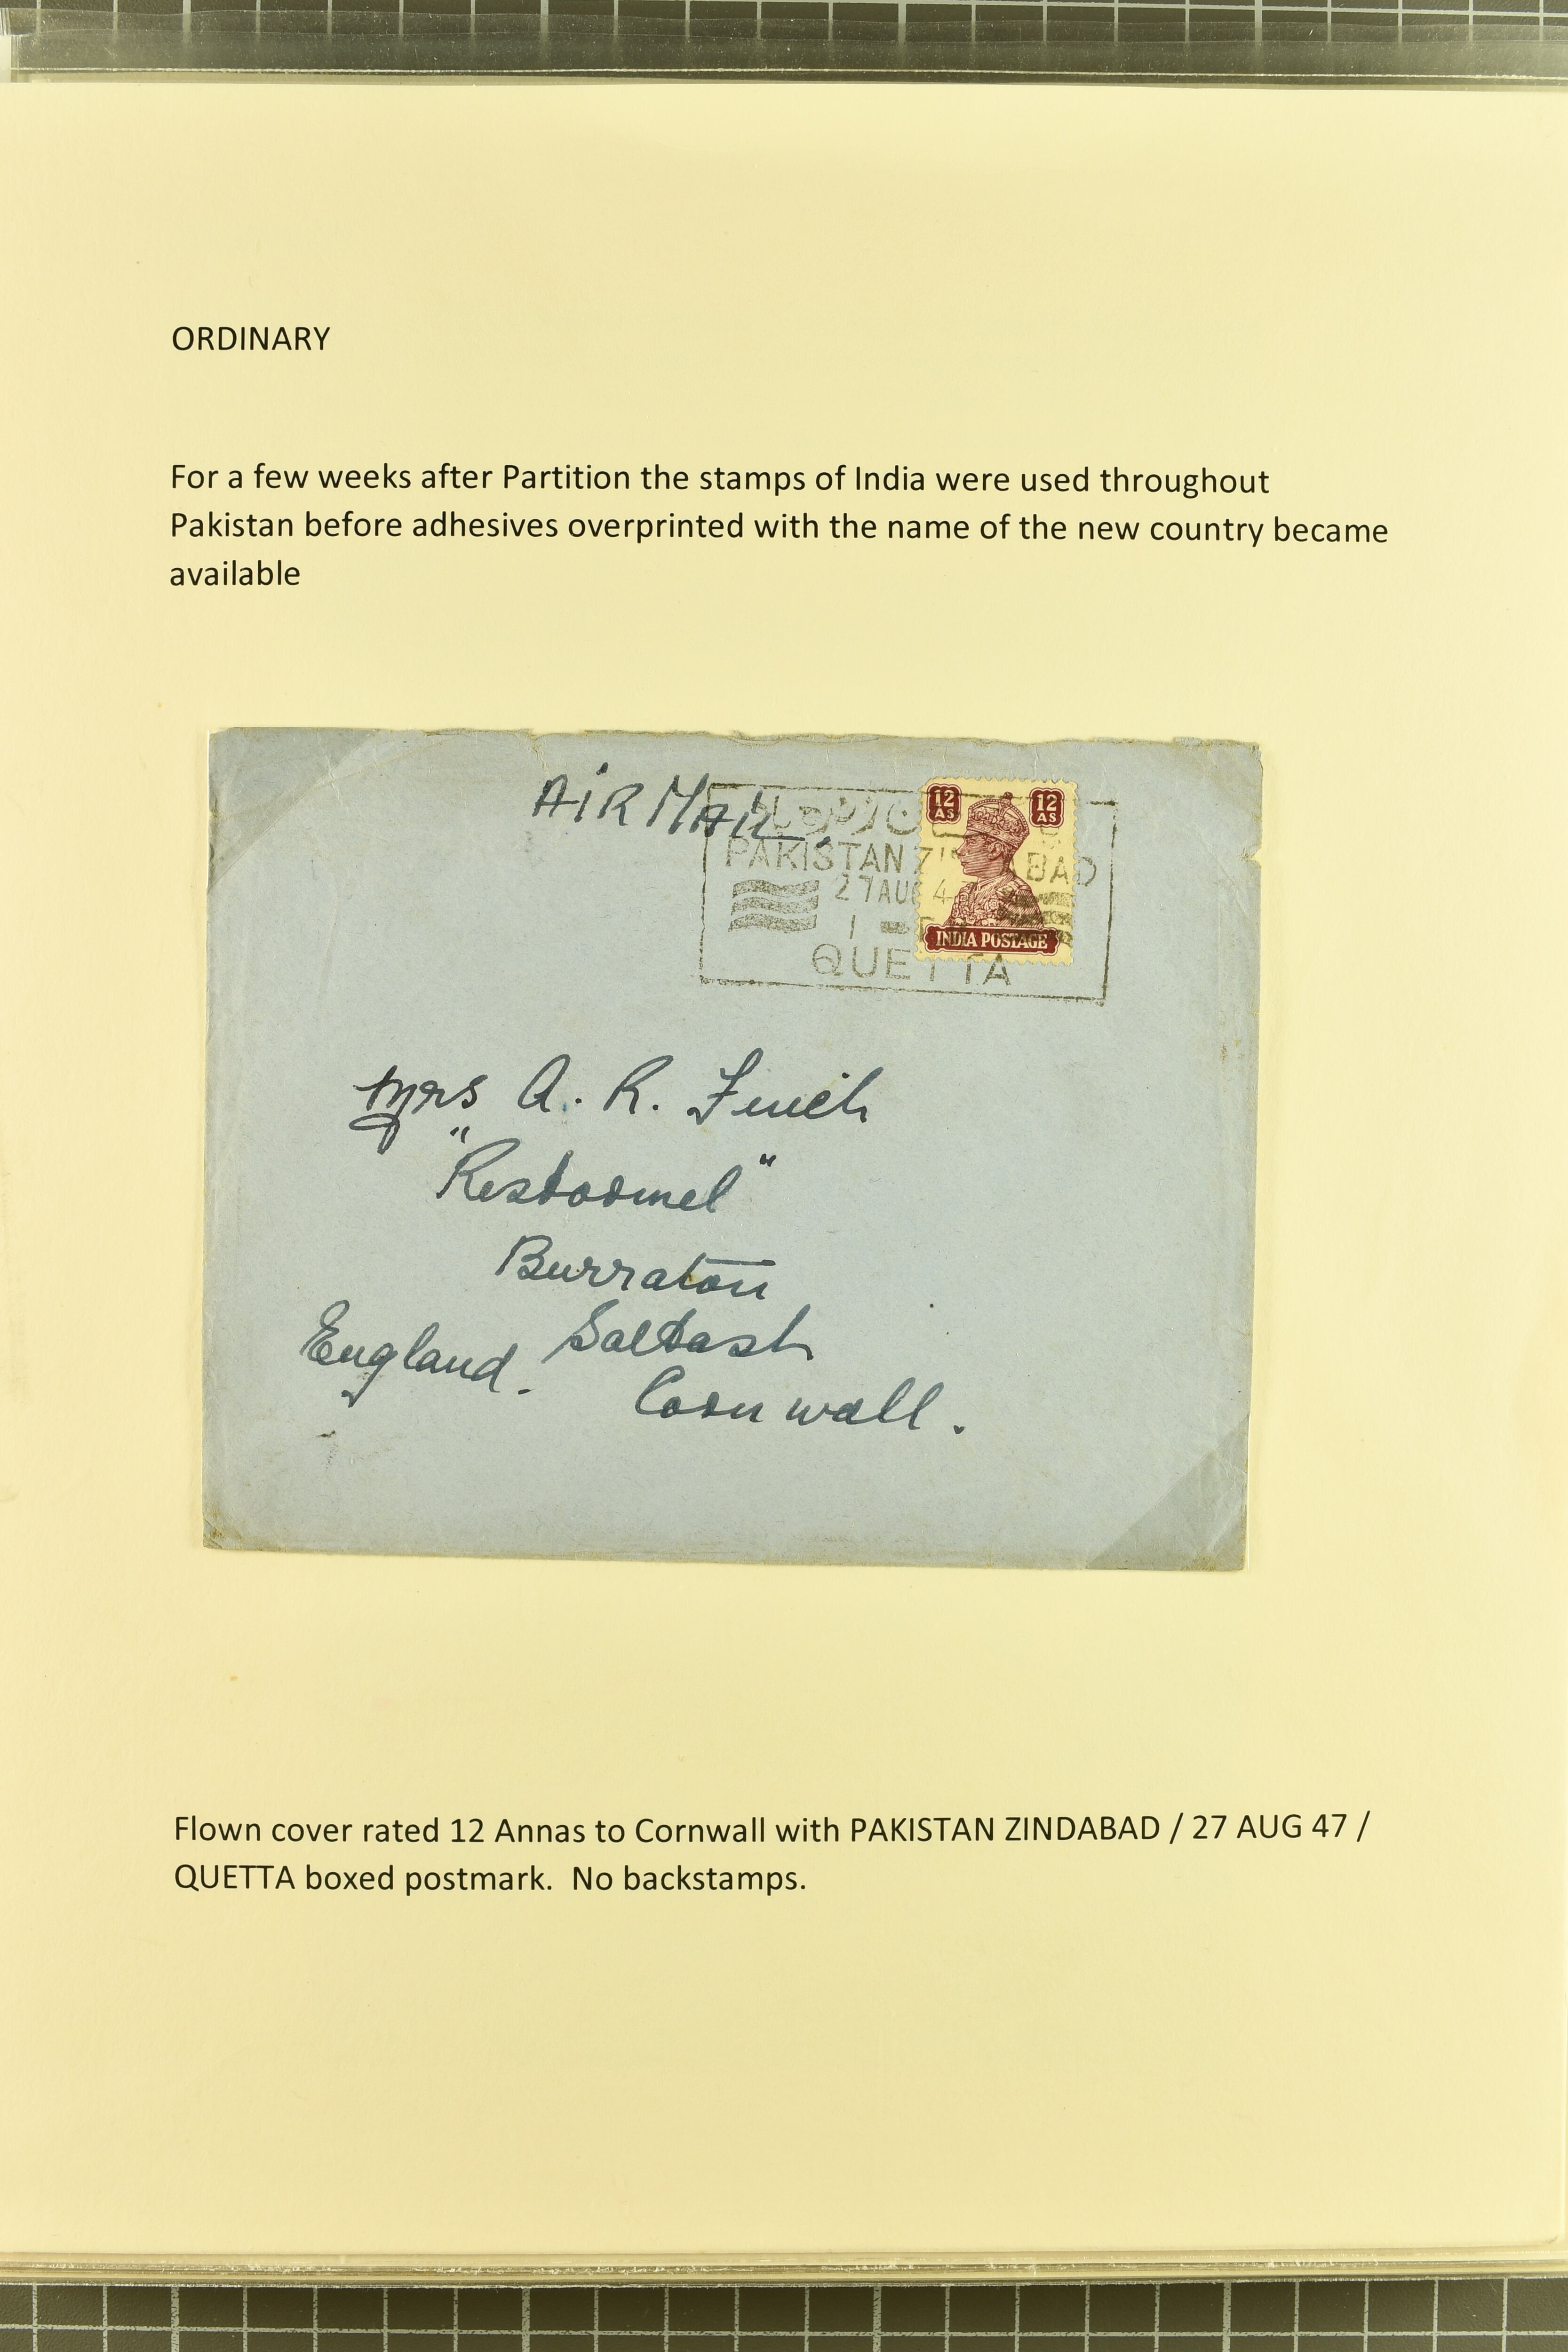 ORDINARY
For a few weeks after Partition the stamps of India were used throughout
Pakistan before adhesives overprinted with the name of the new country became
available
AIR MAIL
12 AS 12 AS
PAKISTAN ZI BAD
27 AUG 4
1
INDIA POSTAGE
QUETTA
Mrs A. R. Finch
"Restormel"
Burraton
Saltash
England.
Cornwall.
Flown cover rated 12 Annas to Cornwall with PAKISTAN ZINDABAD / 27 AUG 47 /
QUETTA boxed postmark. No backstamps.